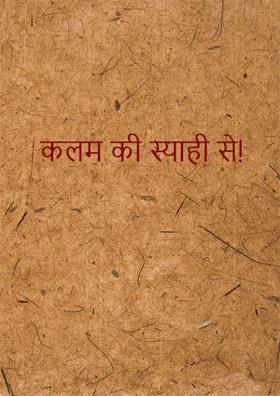 कलम की स्याही से!